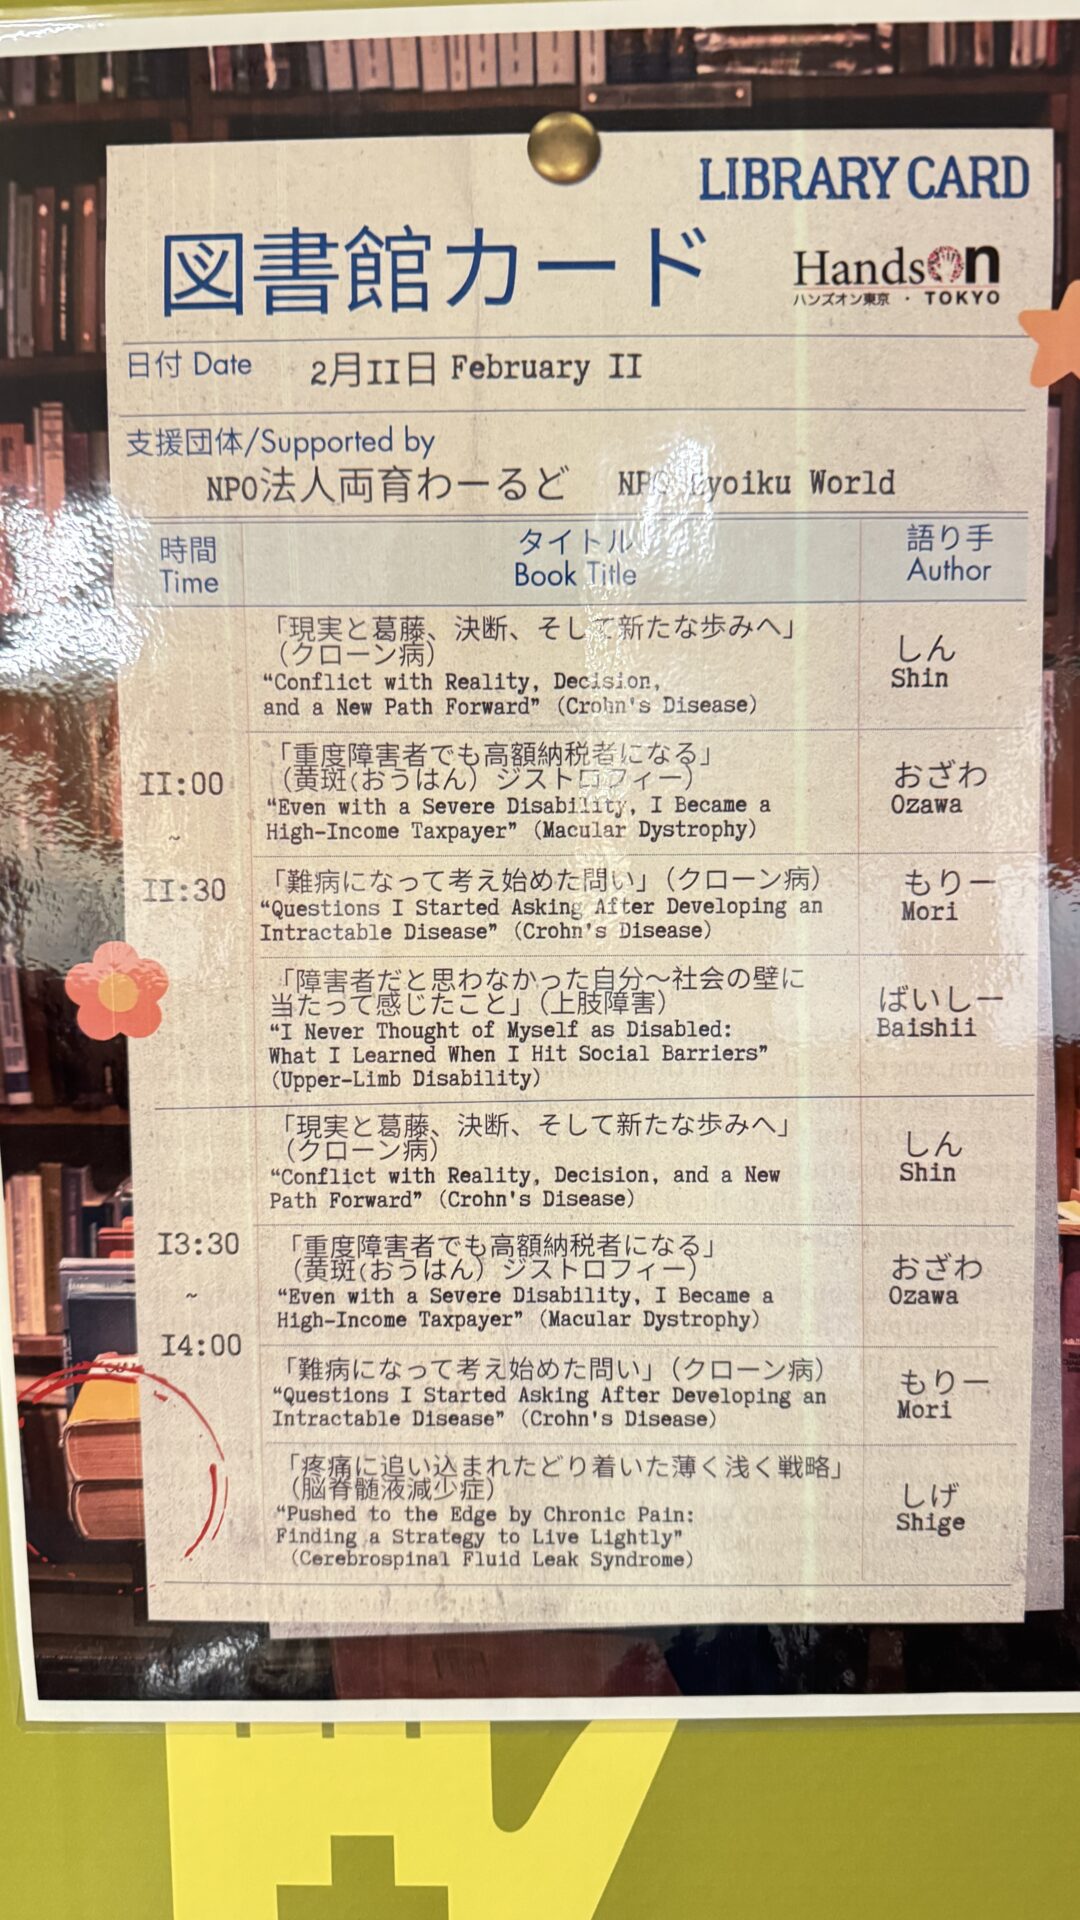 LIBRARY CARD
図書館カード
HandsOn
ハンズオン東京 ・ TOKYO
日付 Date 2月11日 February 11
支援団体/Supported by
NPO法人両育わーるど NPO yoiku World
時間 タイトル 語り手
Time Book Title Author
「現実と葛藤、決断、そして新たな歩みへ」
（クローン病）
“Conflict with Reality, Decision,
and a New Path Forward” (Crohn's Disease)
しん
Shin
11:00
~
11:30
「重度障害者でも高額納税者になる」
（黄斑(おうはん）ジストロフィー）
“Even with a Severe Disability, I Became a
High-Income Taxpayer” (Macular Dystrophy)
おざわ
Ozawa
「難病になって考え始めた問い」（クローン病）
“Questions I Started Asking After Developing an
Intractable Disease” (Crohn's Disease)
もりー
Mori
「障害者だと思わなかった自分〜社会の壁に
当たって感じたこと」（上肢障害）
“I Never Thought of Myself as Disabled:
What I Learned When I Hit Social Barriers”
(Upper-Limb Disability)
ばいしー
Baishii
「現実と葛藤、決断、そして新たな歩みへ」
（クローン病）
“Conflict with Reality, Decision, and a New
Path Forward” (Crohn's Disease)
しん
Shin
13:30
~
14:00
「重度障害者でも高額納税者になる」
（黄斑(おうはん）ジストロフィー）
“Even with a Severe Disability, I Became a
High-Income Taxpayer” (Macular Dystrophy)
おざわ
Ozawa
「難病になって考え始めた問い」（クローン病）
“Questions I Started Asking After Developing an
Intractable Disease” (Crohn's Disease)
もりー
Mori
「疼痛に追い込まれたどり着いた薄く浅く戦略」
（脳脊髄液減少症）
“Pushed to the Edge by Chronic Pain:
Finding a Strategy to Live Lightly”
(Cerebrospinal Fluid Leak Syndrome)
しげ
Shige